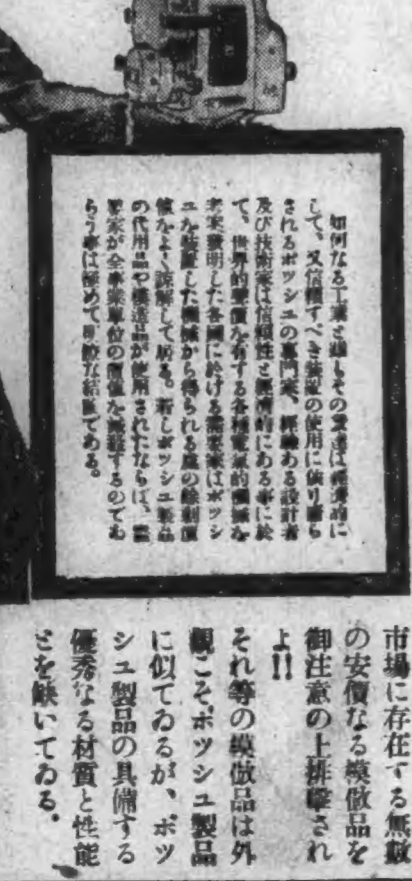 如何なる工業と雖もその發達は經濟的に
して、又信頼すべき裝置の使用に依り齎ら
されるボツシユの專門家、經驗ある設計者
及び技術家は信頼性と經濟的にある事に於
て、世界的聲價を有する各種電氣的機械を
考案發明した各國に於ける需要家はボツシ
ユを裝置した機械から得られる處の
値をよく諒解して居る。若しボツシユ製品
の代用品や模造品が使用されたならば、需
要家が全事業單位の價値を減殺するのであ
らう事は極めて明瞭な結論である。
市場に存在する無數
の安價なる模倣品を
御注意の上排擊され
よ!!
それ等の模倣品は外
觀こそボツシユ製品
に似てゐるが、ボツ
シユ製品の具備する
優秀なる材質と性能
とを缺いてゐる。